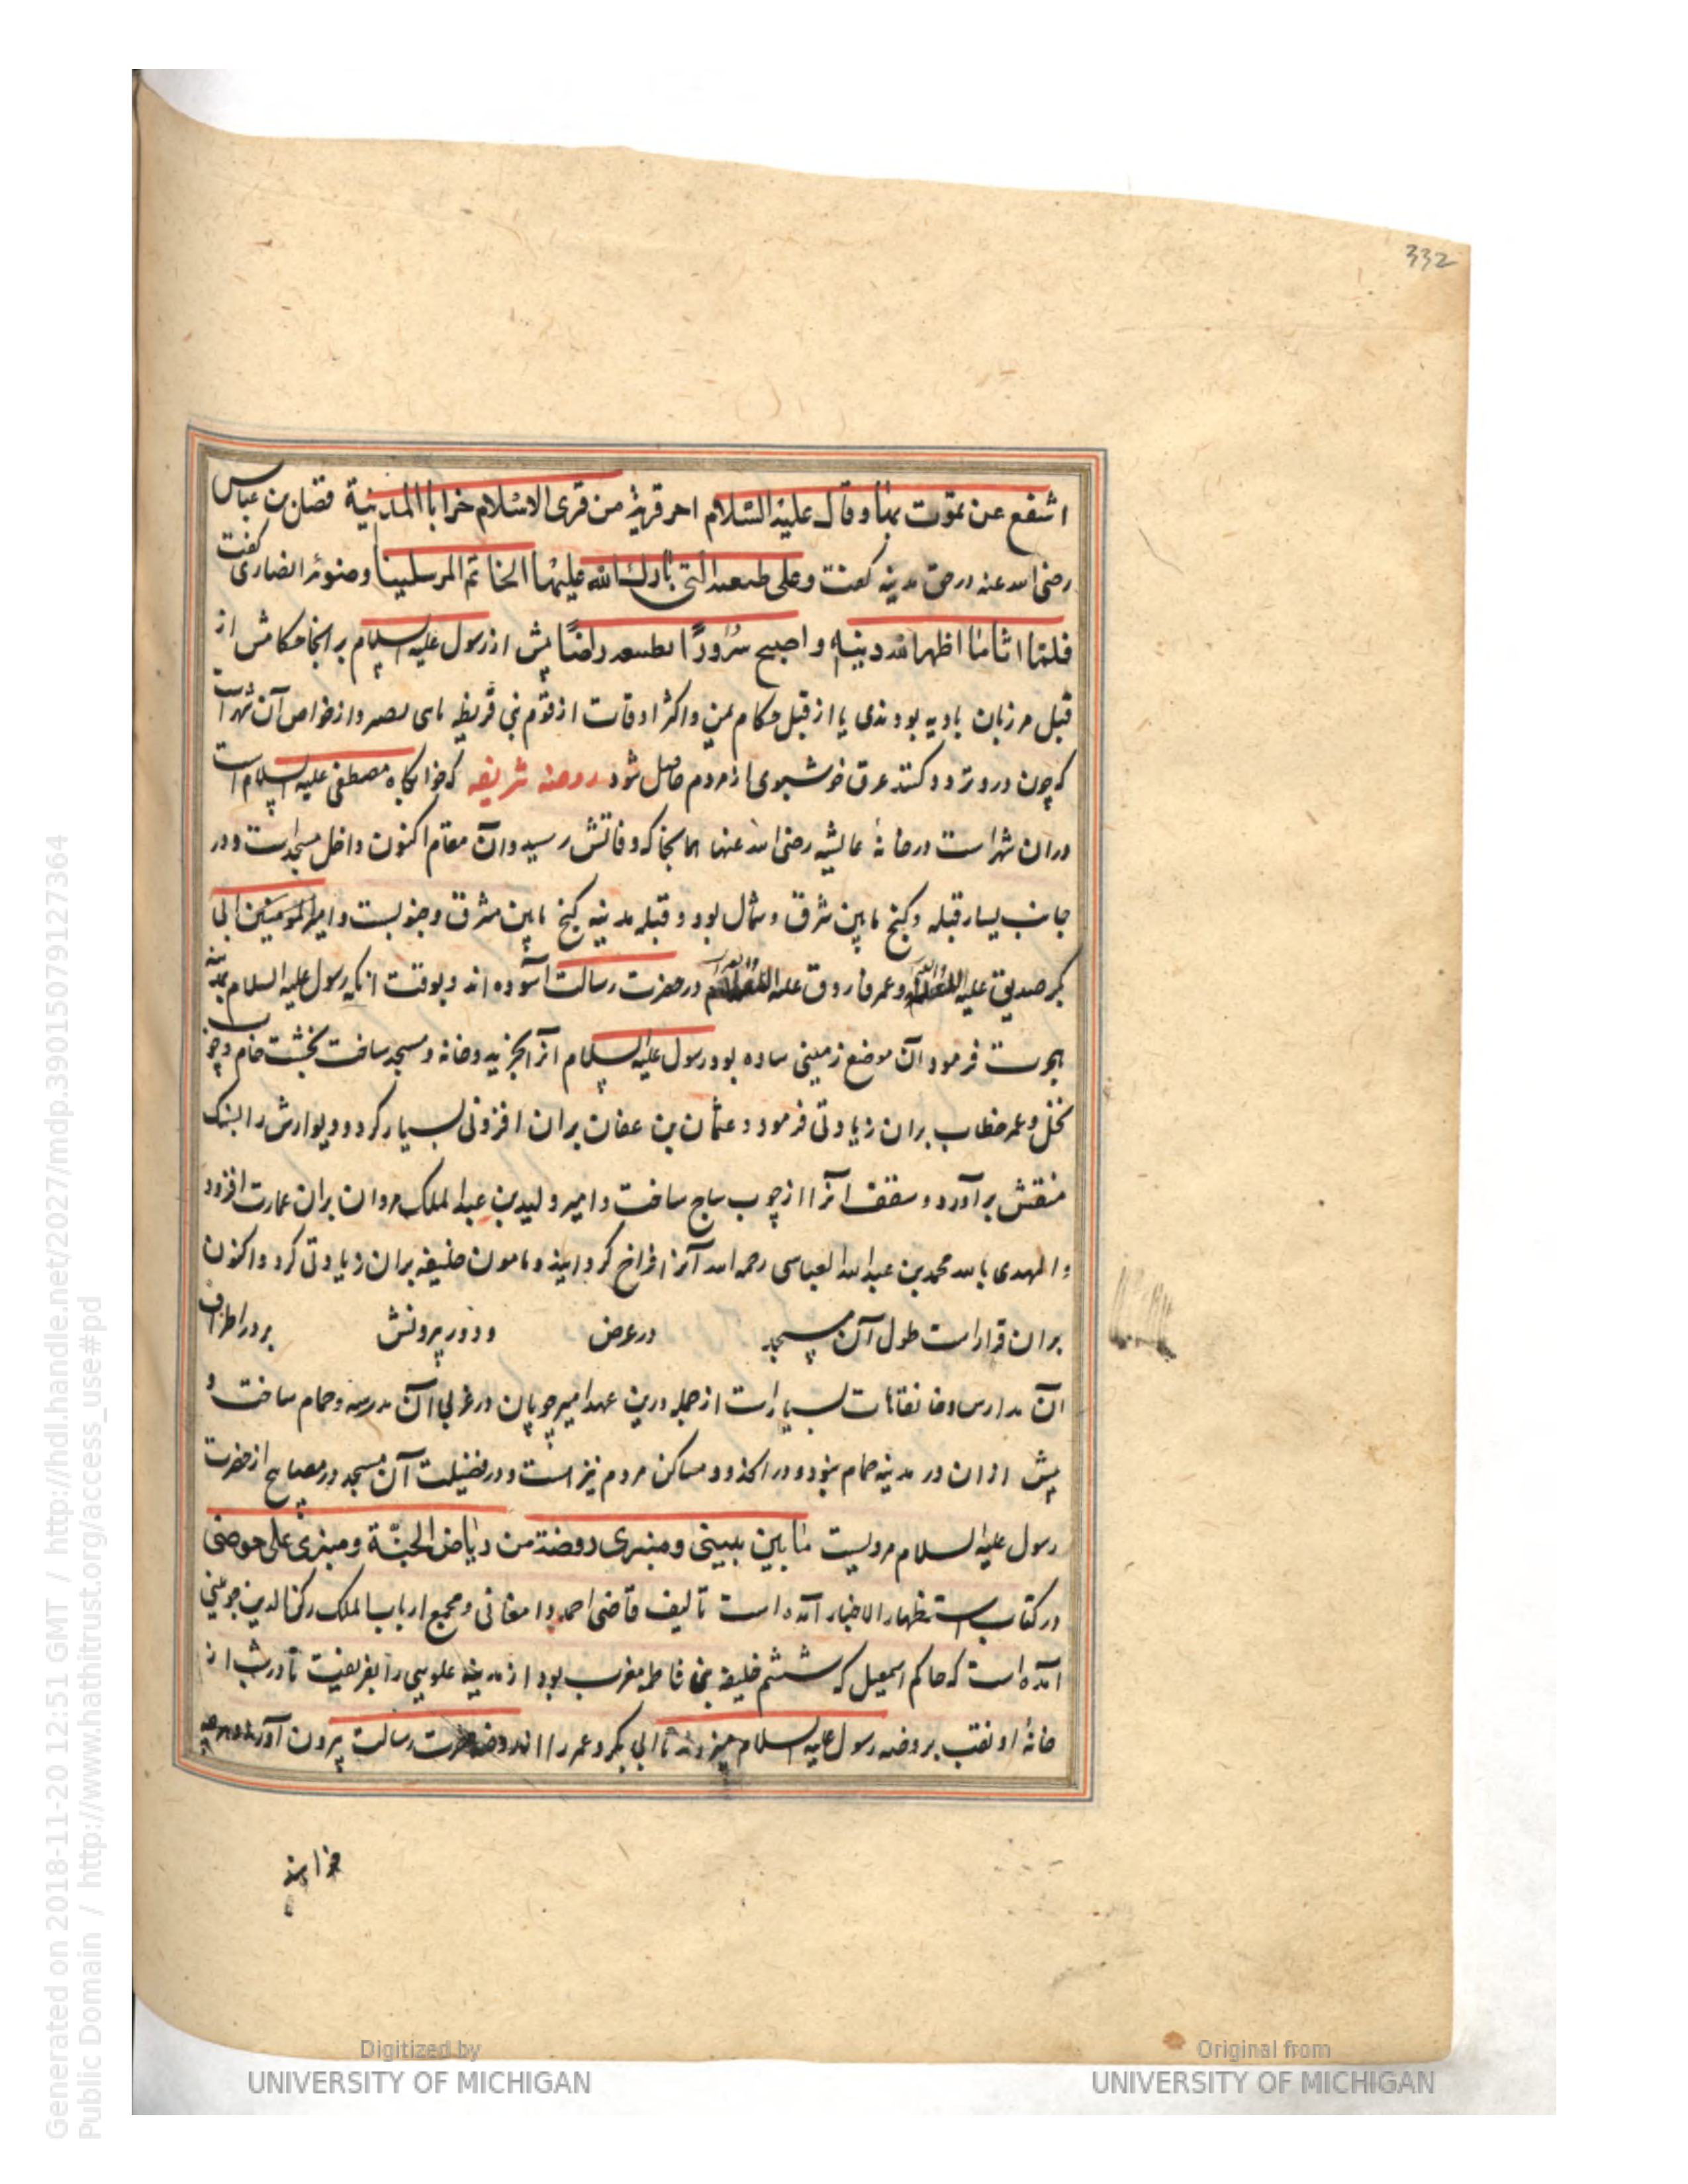 332
اشفع عن تموت بها و قال علیه السلام احر قریة من قری الاسلام خرابا المدینة فضان بن عباس
رضی الله عنه در حق مدینه گفت وعلی طىعىه التی بارك الله علیها الخاتم المرسلینا و صنوئر انصاری گفت
فلما اتانا اظهر الله دینه و اصبح سرورًا بطىىعه راضیًا پیش از رسول علیه السلام بر انجا حکامش از
قبل مرزبان بادیه بودندی یا از قبل حکام یمن و اکثر اوقات از قوم بنی قریظه و از خواص آن شهر است
که چون درو تردد کنند عرق خوشبوی از مردم حاصل شود روضه شریفه که خوابگاه مصطفی علیه السلام است
دران شهر است در خانهٔ عایشه رضی الله عنها همانجا که وفاتش رسید و آن مقام اکنون داخل مسجد است و در
جانب یسار قبله و کنج مابین شرق و شمال بود و قبله مدینه کنج مابین مشرق و جنوبست و امیر المومنین ابی
بکر صدیق علیه و عمر فاروق علیه در حضرت رسالت آسوده اند و بوقت انکه رسول علیه السلام بمدینه
هجرت فرمود آن موضع زمینی ساده بود رسول علیه السلام انرا بخرید و خانه و مسجد ساخت بخشت خام و چوب
نخل و عمر خطاب بران زیادتی فرمود و عثمان بن عفان بران افزونی بسیار کرد و دیوارش را بسنک
منقش برآورد و سقف انرا از چوب ساج ساخت و امیر ولید بن عبد الملک مروان بران عمارت افزود
و المهدی بالله محمد بن عبد الله العباسی رحمه الله آنرا فراخ کردانید و مامون خلیفه بران زیادتی کرد و اکنون
بران قرار است طول آن مسجد در عرض و دور پرونش بر در اطراف
آن مدارس و خانقاهات بسیار است از جمله درین عهد امیر چوپان در غربی آن مدرسه و حمام ساخت و
پیش ازان در مدینه حمام نبود و در و مساکن مردم نیز است و در فضیلت آن مسجد در مصابیح از حضرت
رسول علیه السلام مرویست ما بین بیتی و منبری روضة من ریاض الجنّة و منبری علی حوضی
در کتاب استظهار الاخبار آمده است تألیف قاضی احمد دامغانی و مجمع ارباب الملک رکن الدین جوینی
آمده است که حاکم اسمعیل که ششم خلیفه بنی فاطمه مغرب بود از مدینه علویی را بفریفت تا در شب از
خانهٔ او نقب بر روضه رسول علیه السلام میزدند تا ابی بکر و عمر را از روضه حضرت رسالت پرون آورند و هر چه
خواهند
Digitized by
UNIVERSITY OF MICHIGAN
Original from
UNIVERSITY OF MICHIGAN
Generated on 2018-11-20 12:51 GMT / http://hdl.handle.net/2027/mdp.39015079127364
Public Domain / http://www.hathitrust.org/access_use#pd